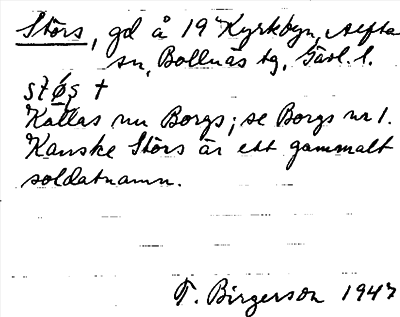 Störs, gd å 19 Kyrkbyn, Alfta
sn, Bollnäs tg, Gävl. l.
støş +
Kallas nu Borgs; se Borgs nr 1.
Kanske Störs är ett gammalt
soldatnamn.
T. Birgerson 1947